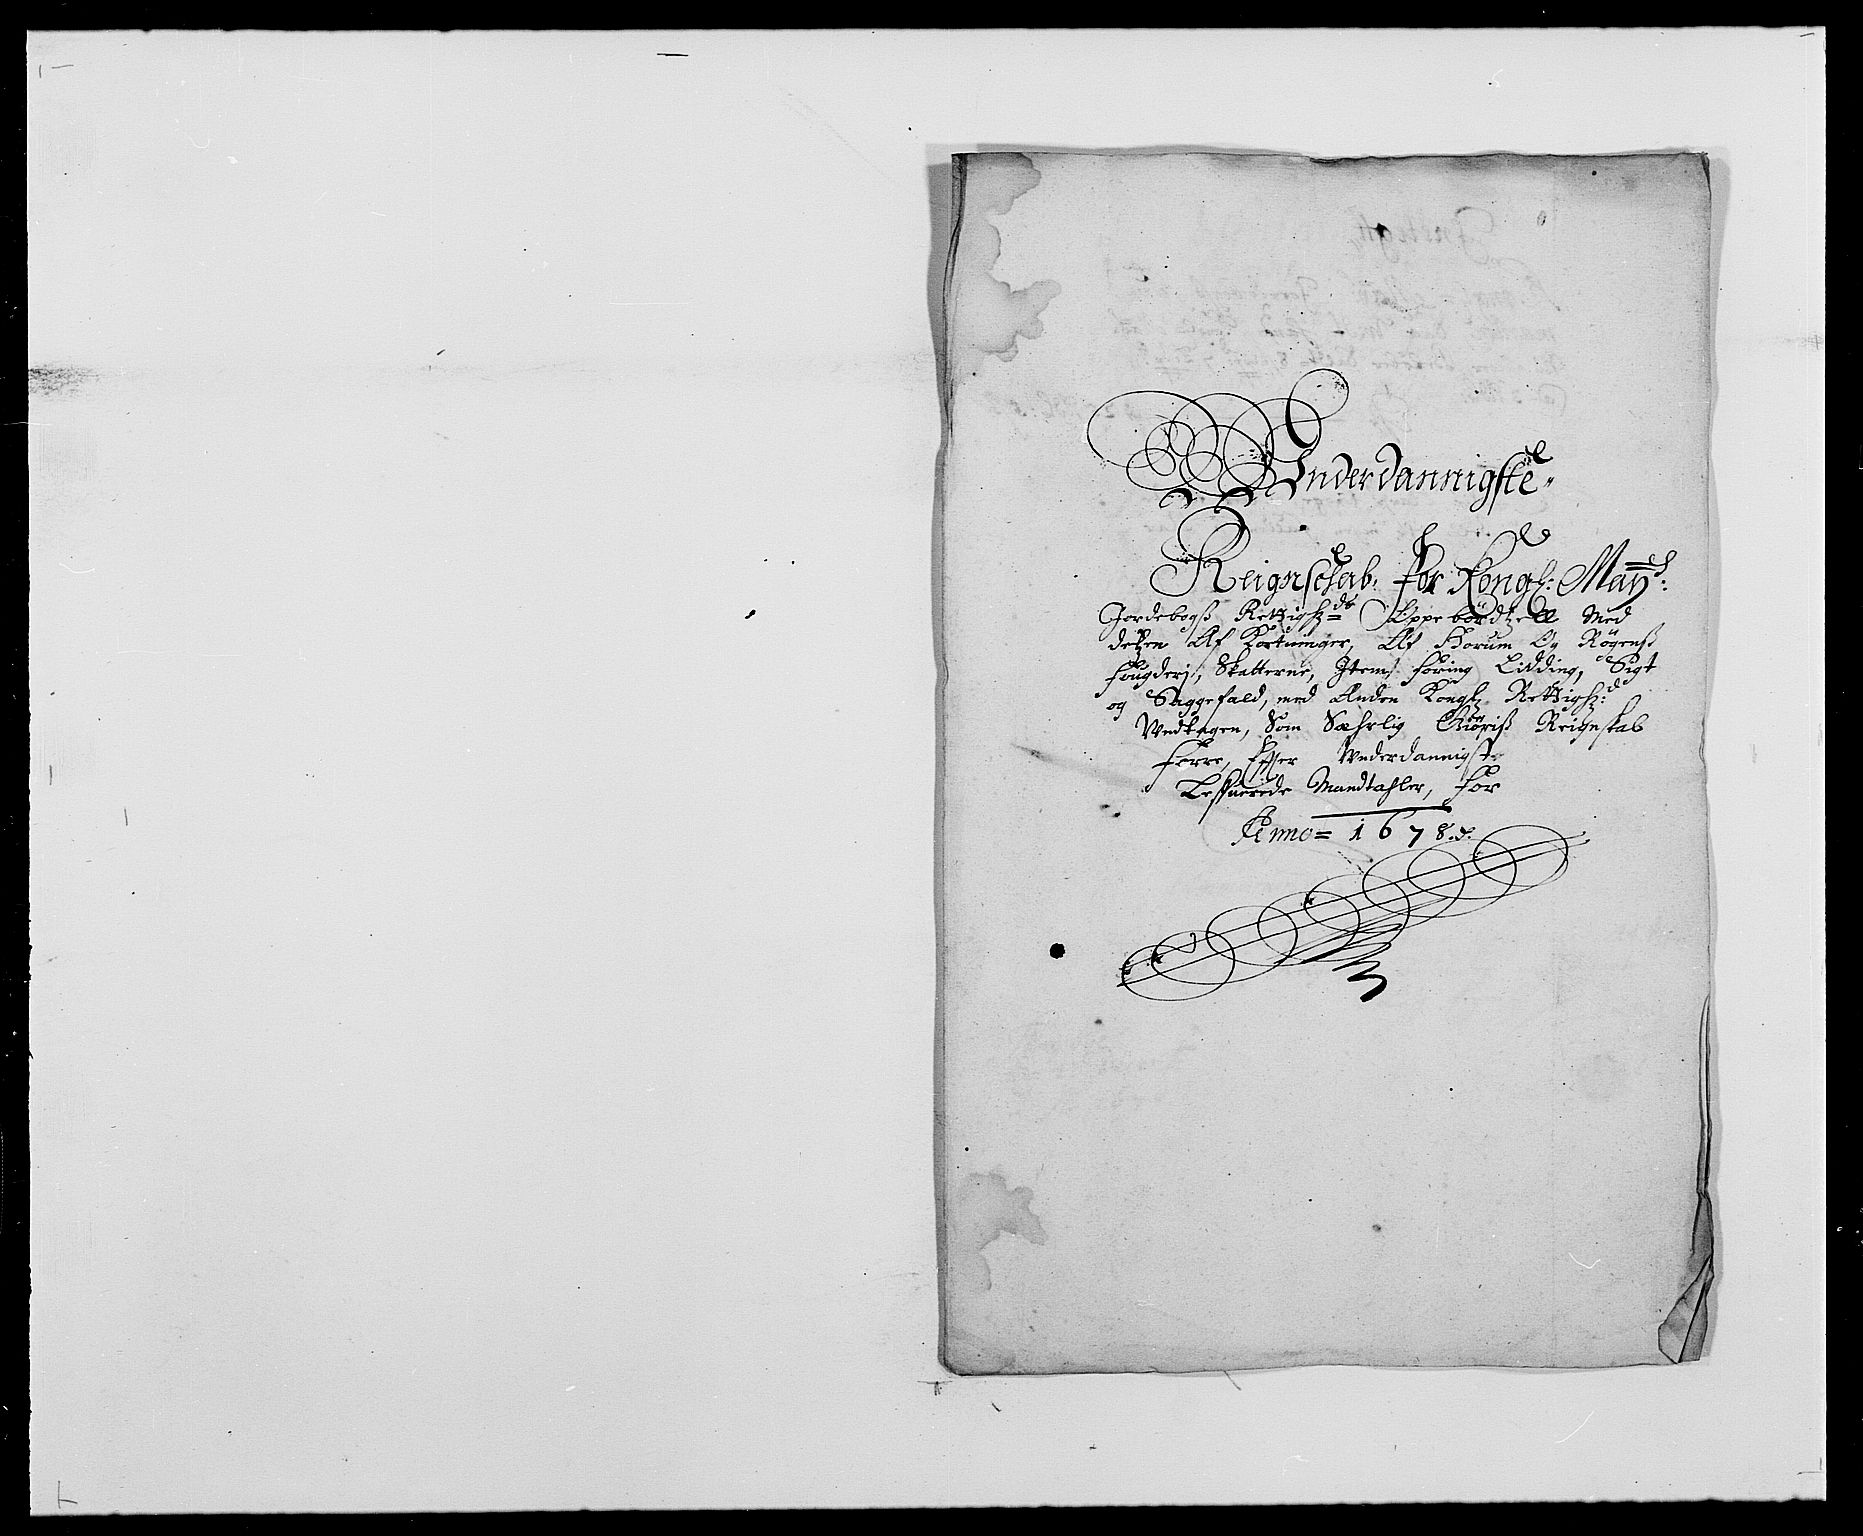 Vnderdannigste
Reignschab. for Kongl: May:ts:
Jordebogs Rettighz=ds Oppebördzell Med
detzen Af Kortninger, Af Hurum Og Rögens
fougderj, Skatterne, Item foring Lidding, Sigt
og Saggefald, med Anden Kongl Rettighz:d
Vndtagen, Som Sæhrlig Giöris Reignskab
forre, Effter Vnderdannigst
Lefuerede Mandtahler, for
Anno= 1678.